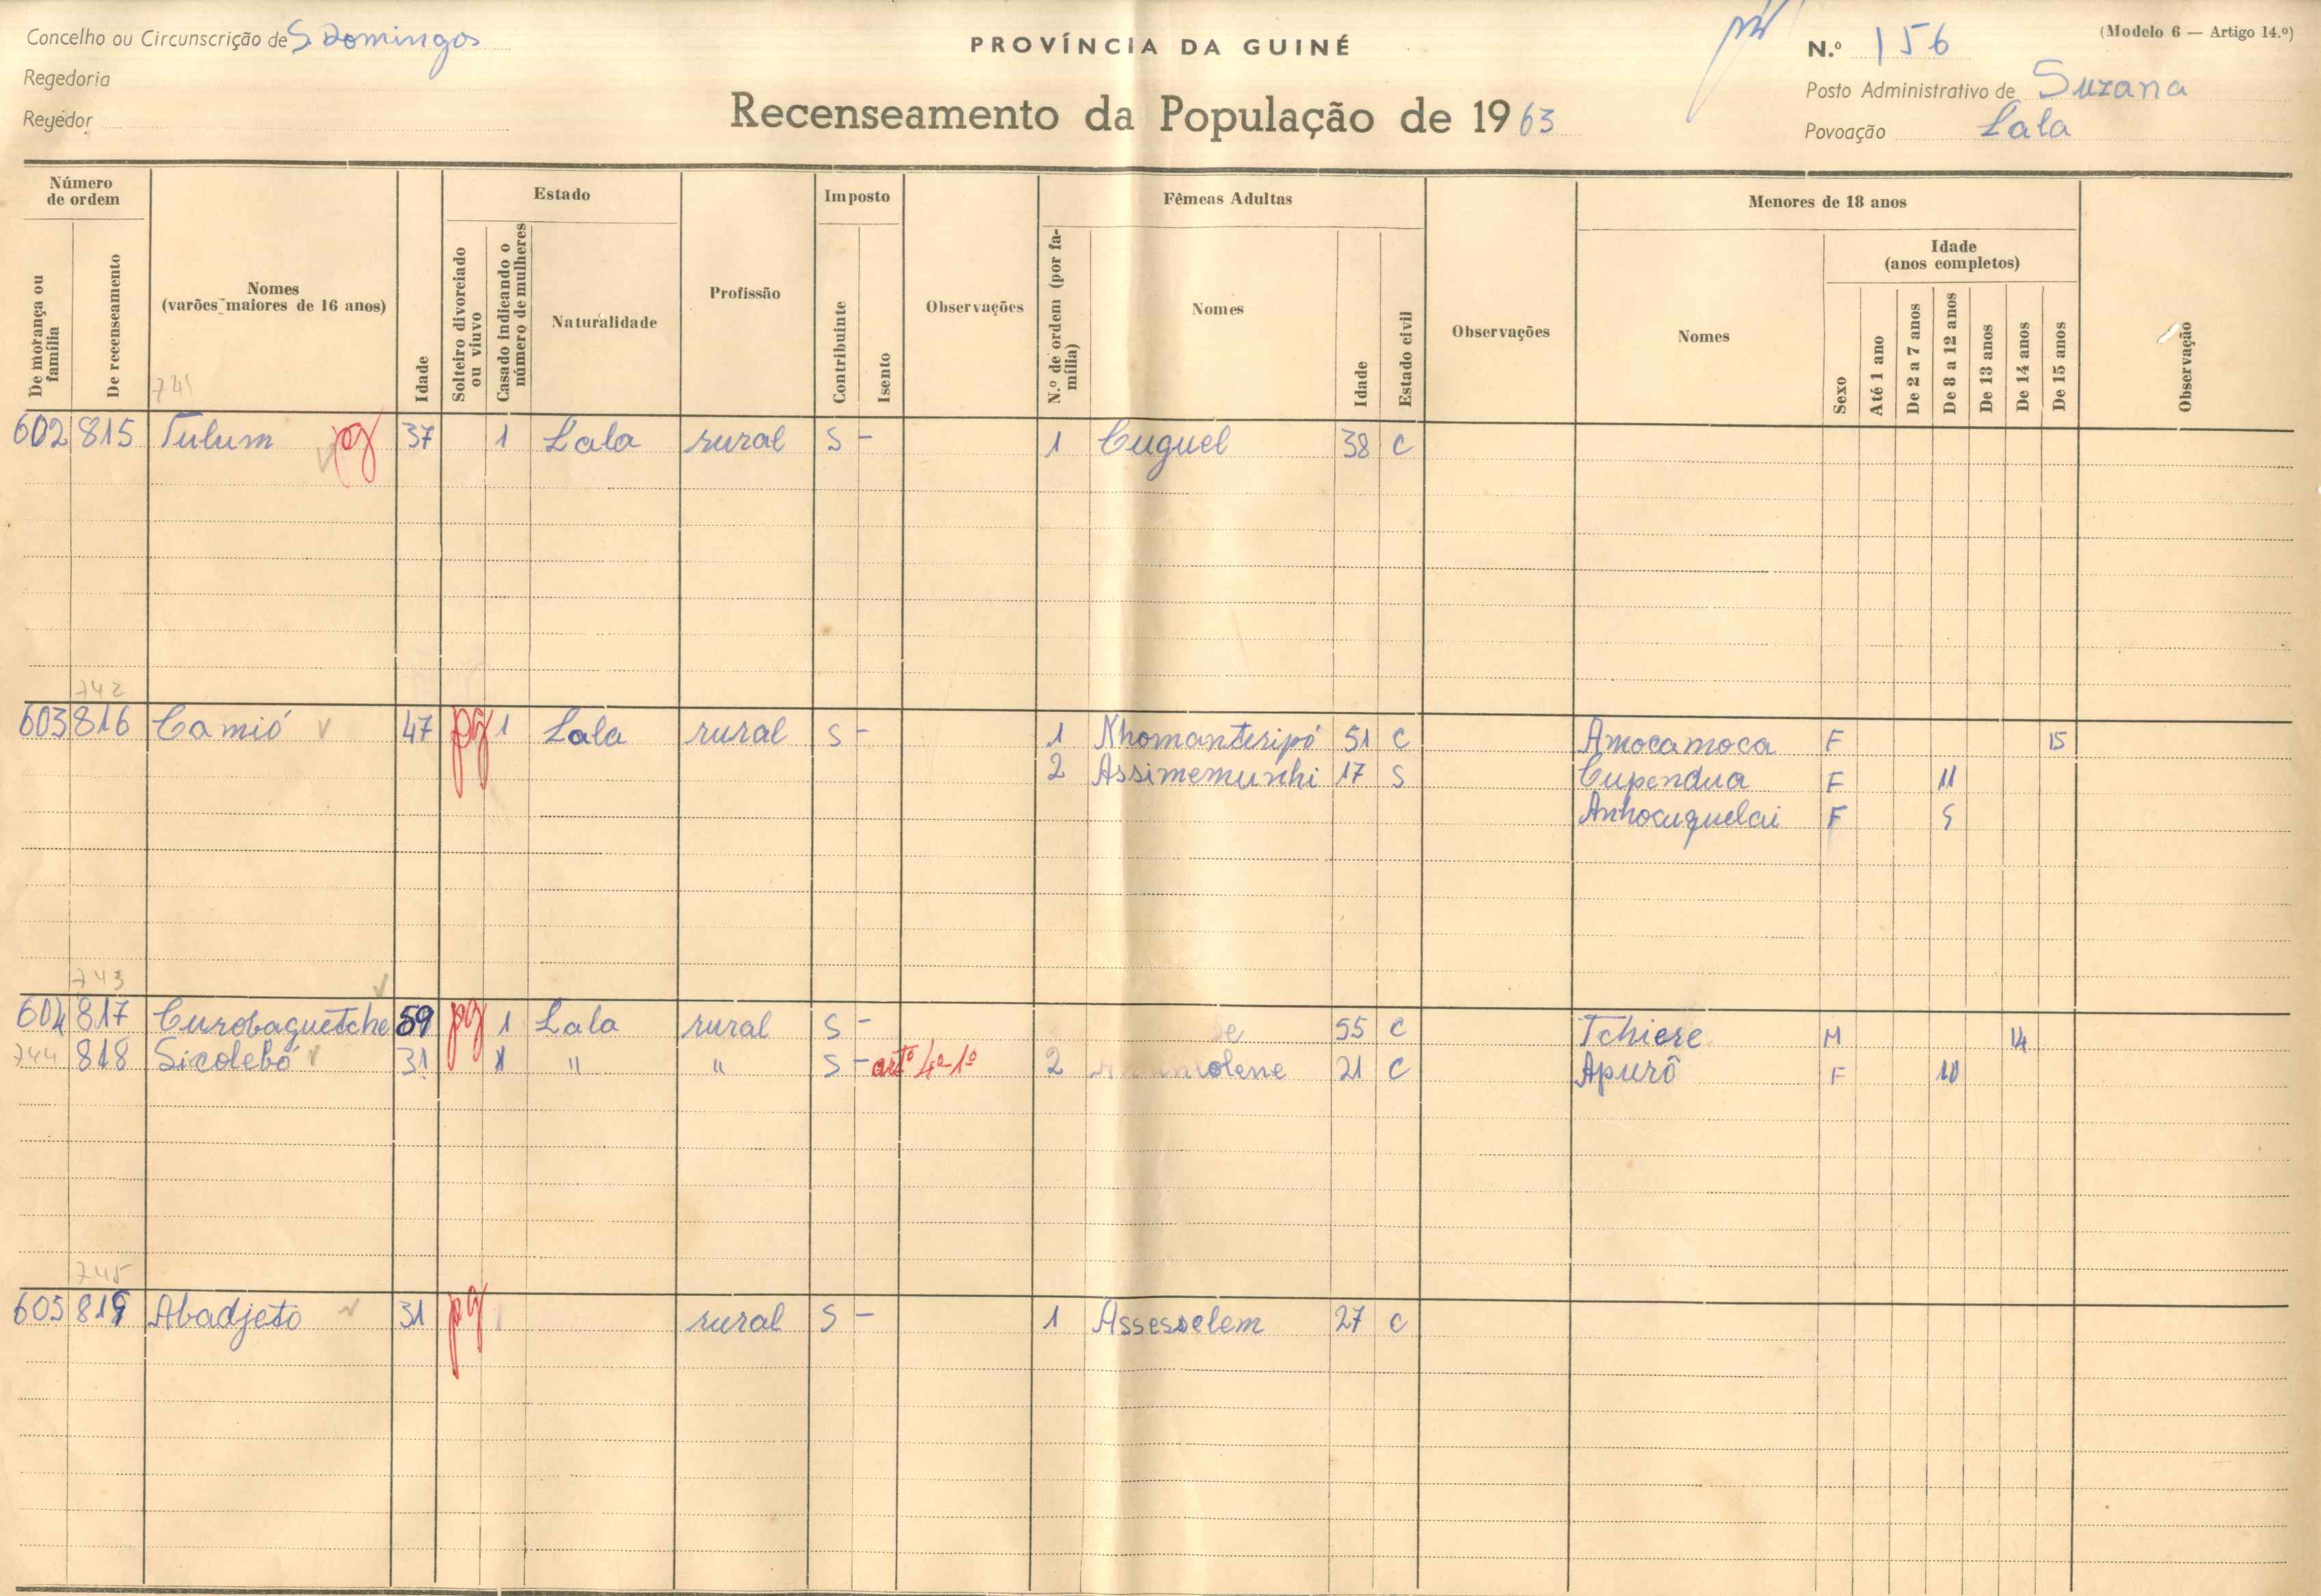 Concelho ou Circunscrição de S. Domingos
Regedoria
Regedor
PROVÍNCIA DA GUINÉ
Recenseamento da População de 1963
N.º 156
(Modelo 6 — Artigo 14.º)
Posto Administrativo de Suzana
Povoação Lala
Número de ordem
De morança ou família
De recenseamento
Nomes
(varões maiores de 16 anos)
Idade
Estado
Solteiro divorciado ou viuvo
Casado indicando o número de mulheres
Naturalidade
Profissão
Imposto
Contribuinte
Isento
Observações
Fêmeas Adultas
N.º de ordem (por família)
Nomes
Idade
Estado civil
Observações
Menores de 18 anos
Nomes
Idade
(anos completos)
Sexo
Até 1 ano
De 2 a 7 anos
De 8 a 12 anos
De 13 anos
De 14 anos
De 15 anos
Observação
741
602 815 Tulum pg 37 1 Lala rural S - 1 Cuguel 38 C
742
603 816 Camió 47 pg 1 Lala rural S - 1 Nhomanteripó 51 C Amocamoca F 15
2 Assimemunhi 17 S Cupendua F 11
Anhocuguelai F
743
604 817 Curobaguetche 59 pg 1 Lala rural S - 55 C Tchiere M 14
744 818 Sicolebó 31 1 " " S - artº 4º-1º 2 21 C Apurô F 10
745
605 819 Abadjeto 31 pg rural S - 1 Assesselem 27 C